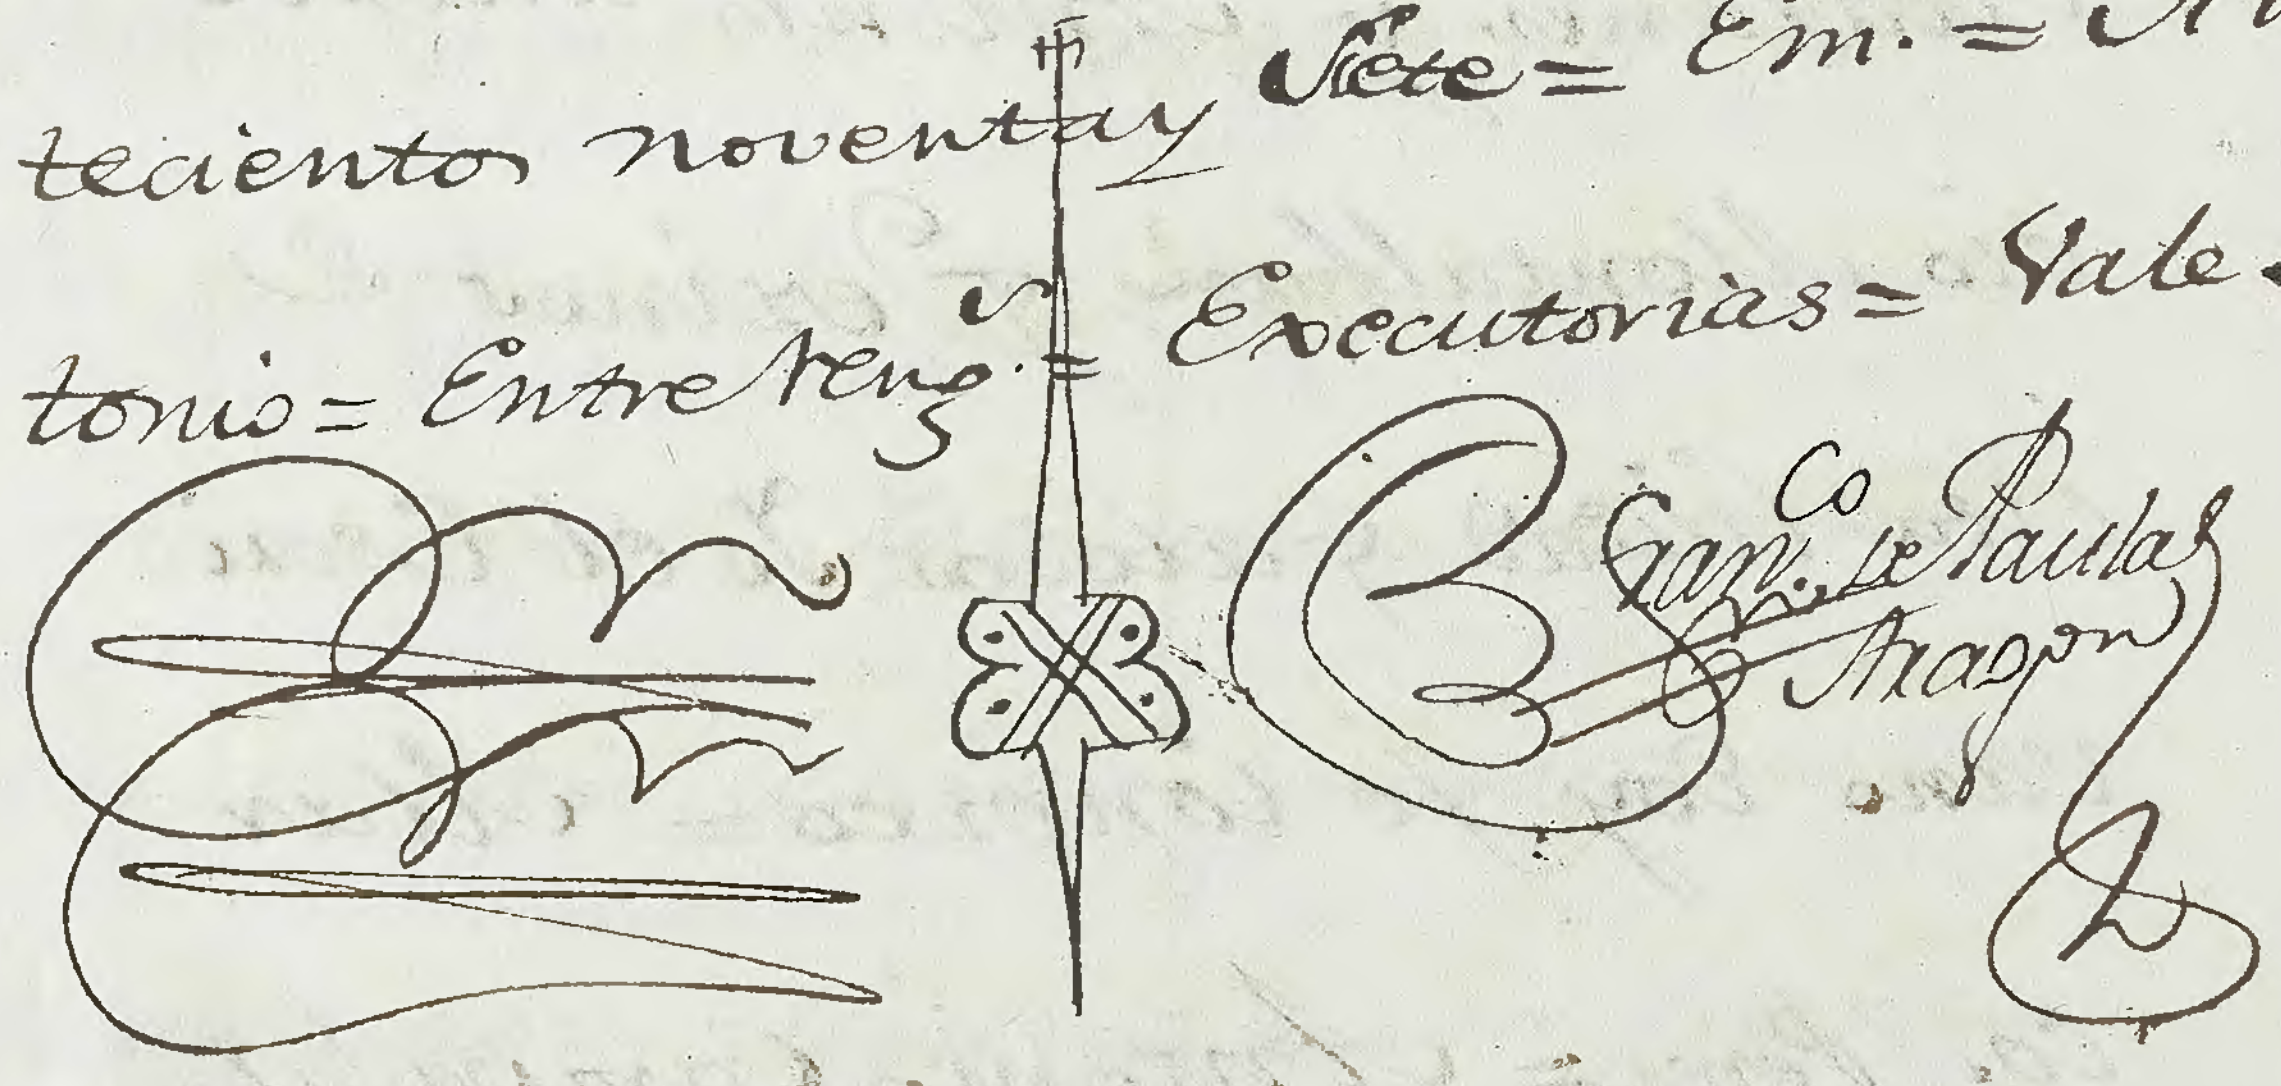 teciento noventay Siete = Em. =
tonio = Entre reng.s = Executorias = Vale.
Fran.co de Paula
Aragon